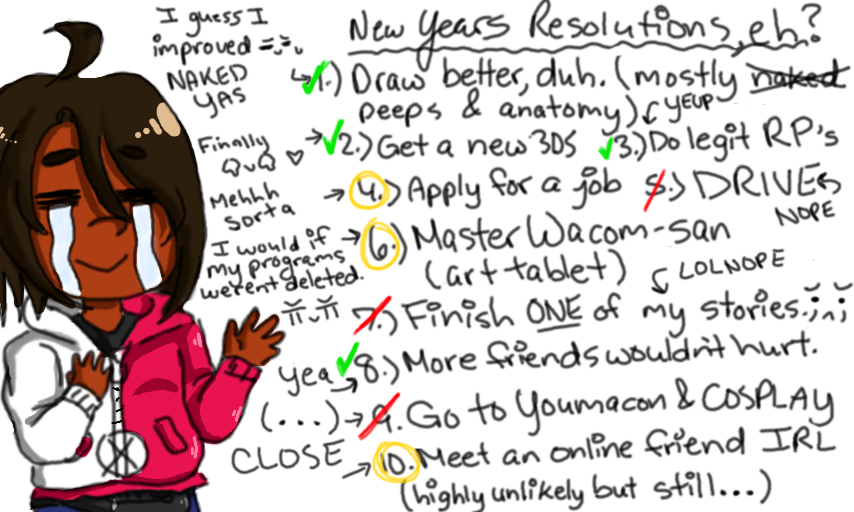 New Years Resolutions, eh?
I guess I
improved =u=
NAKED
YAS
1.) Draw better, duh. (mostly naked
peeps & anatomy) YEUP
Finally
♡
2.) Get a new 3DS 3.) Do legit RP's
Mehhh
sorta
4.) Apply for a job 5.) DRIVE
NOPE
I would if
my programs
werent deleted.
6.) Master Wacom-san
(art tablet)
LOLNOPE
7.) Finish ONE of my stories. ;n;
yea
8.) More friends wouldn't hurt.
(...)
9. Go to Youmacon & COSPLAY
CLOSE
10. Meet an online friend IRL
(highly unlikely but still...)